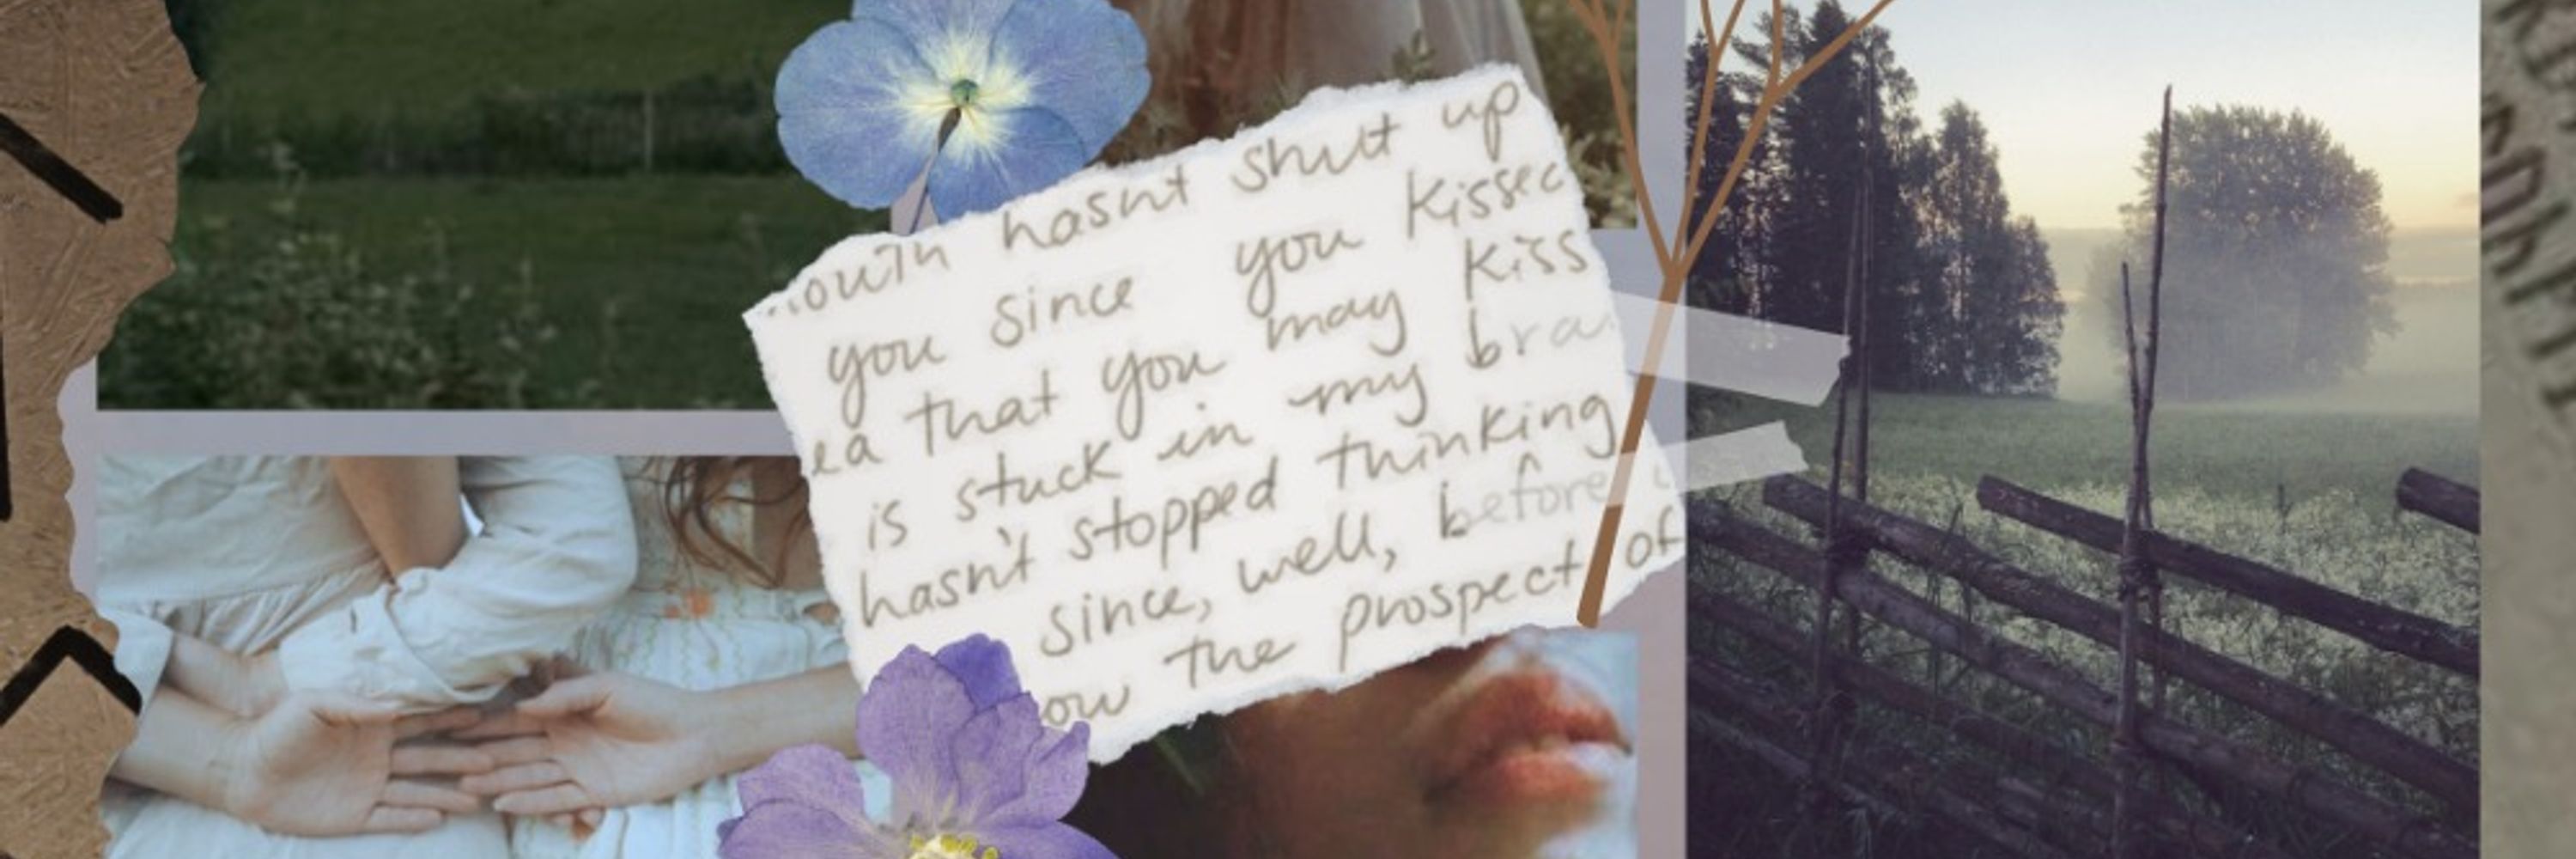 hasnt shut up
you since you kissec
ea that you may kiss
is stuck in my bra
hasn't stopped thinking
since, well, before
ow the prospect of